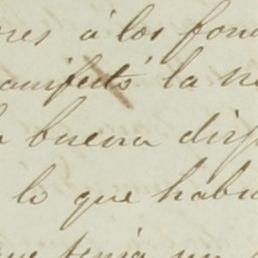 res á los fon
anifestó la n
a buena disp
lo que habi
que tenía un